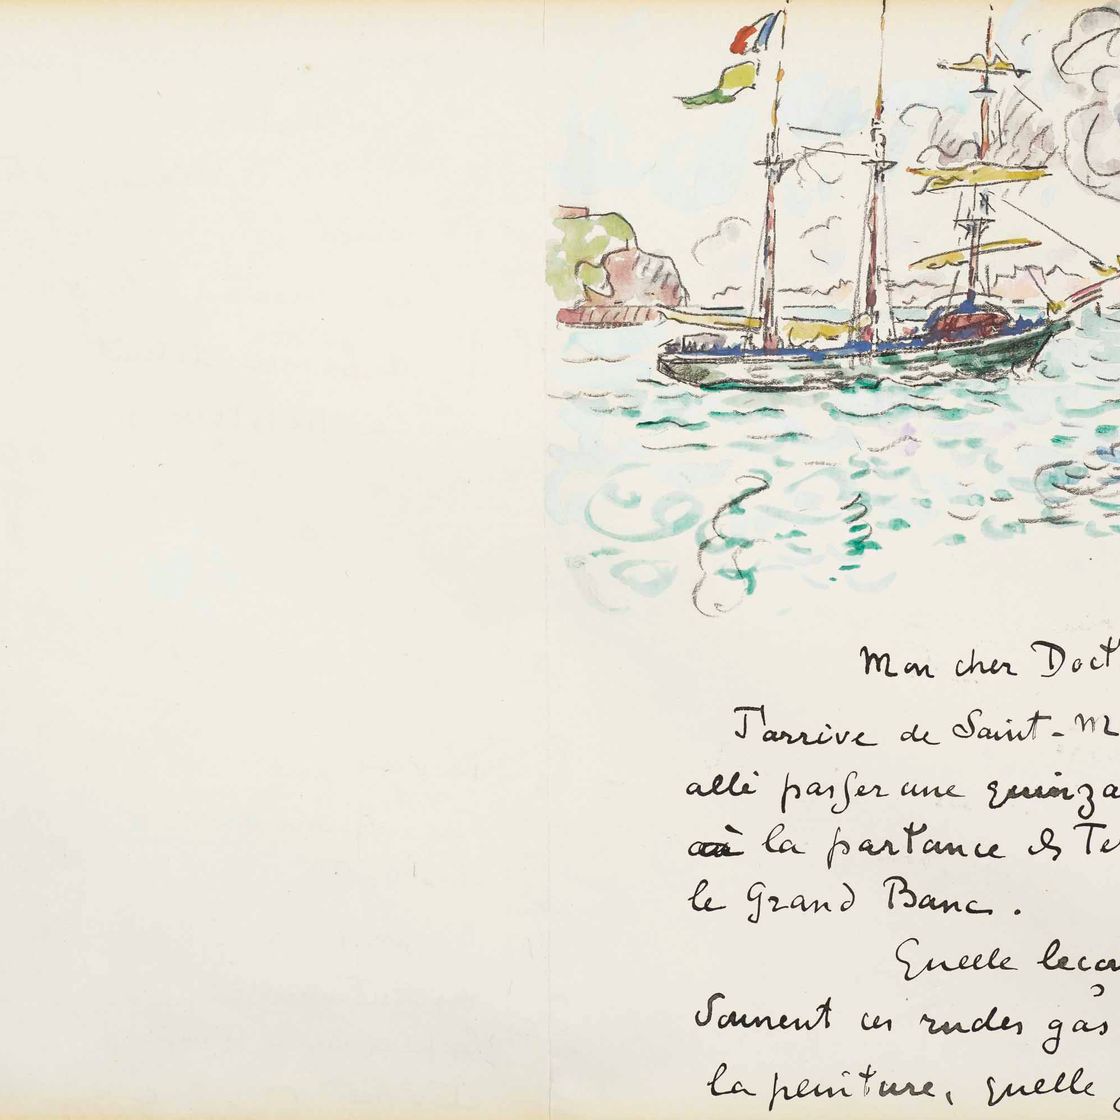 Mon cher Doct
J'arrive de Saint-M
allé passer une quinza
à la partance des Te
le Grand Banc.
Quelle leçon
donnent ces rudes gas
la peinture, quelle